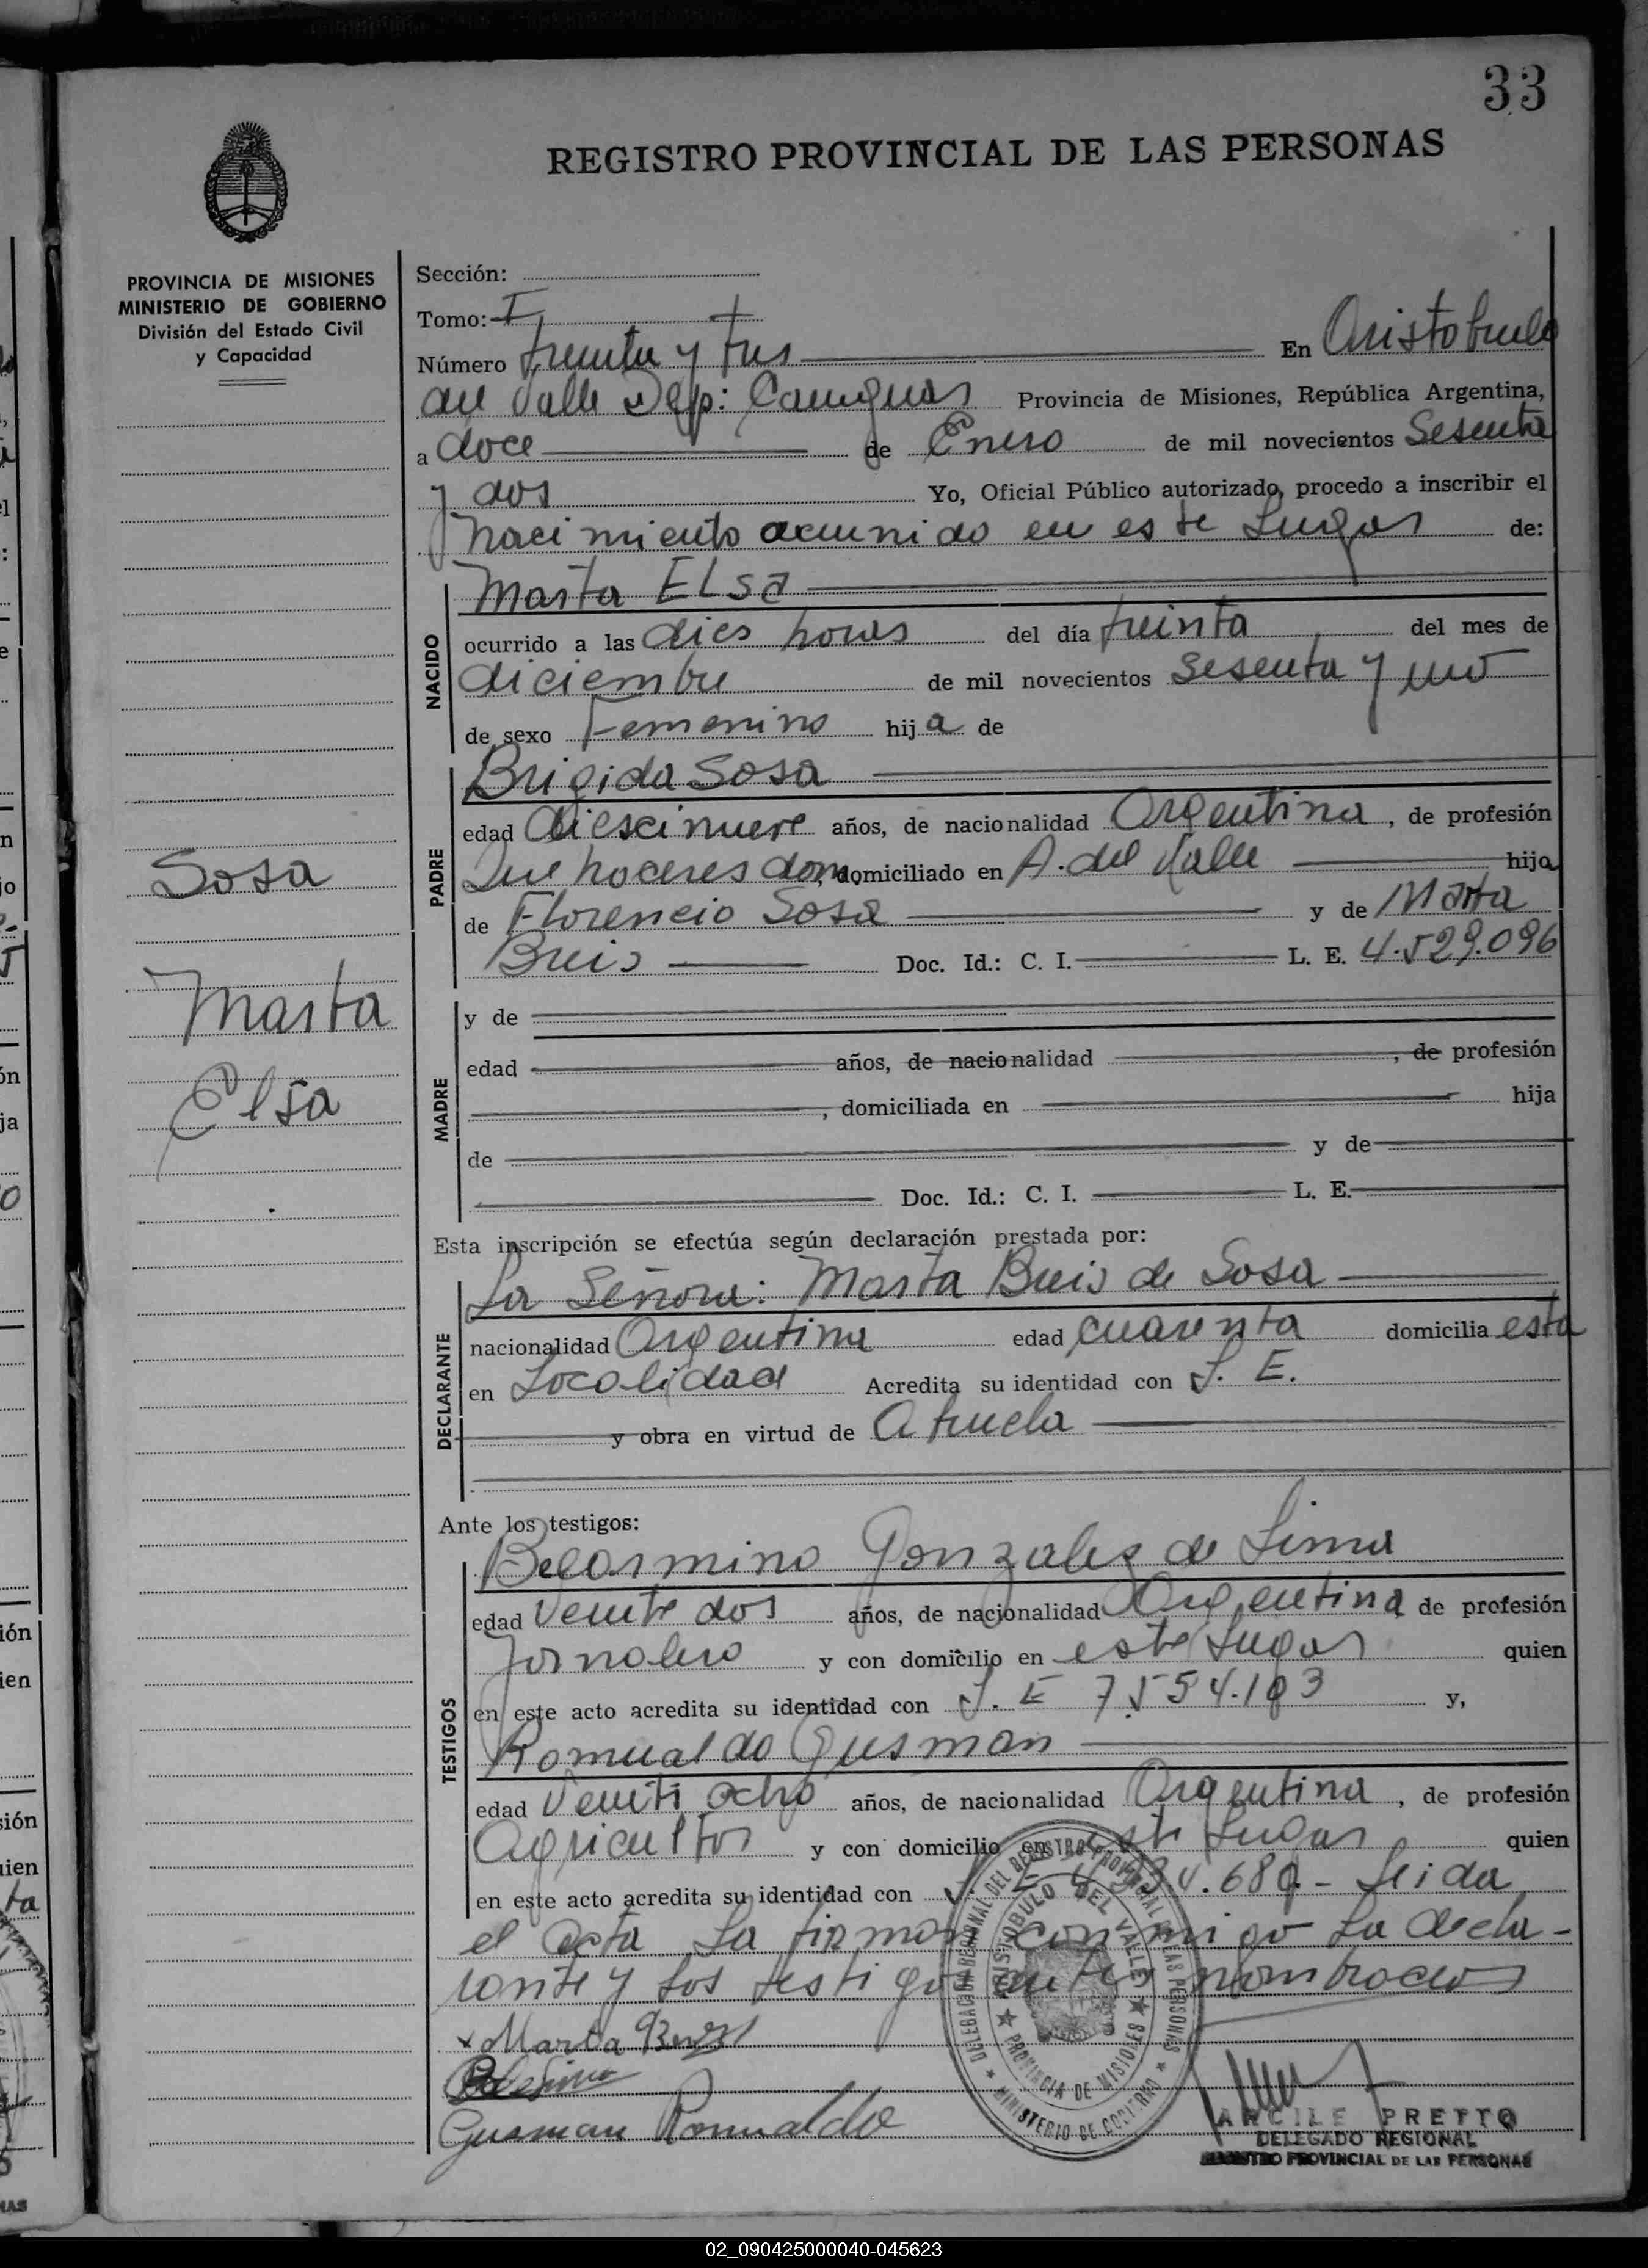 33
REGISTRO PROVINCIAL DE LAS PERSONAS
PROVINCIA DE MISIONES
MINISTERIO DE GOBIERNO
División del Estado Civil
y Capacidad
Sosa
Marta
Elsa
Sección:
Tomo: I
Número treinta y tres En Aristobulo
del Valle Dep: Cainguas Provincia de Misiones, República Argentina,
a doce de Enero de mil novecientos Sesenta
y dos Yo, Oficial Público autorizado, procedo a inscribir el
nacimiento ocurrido en este Lugar de:
NACIDO
Marta ELsa
ocurrido a las dies horas del día treinta del mes de
diciembre de mil novecientos sesenta y uno
de sexo Femenino hija de
PADRE
Brigida Sosa
edad diescinueve años, de nacionalidad Argentina, de profesión
Que haceres dom, domiciliado en A. del Valle hija
de Florencio Sosa y de Marta
Doc. Id.: C. I. L. E. 4.529.096
MADRE
y de
edad años, de nacionalidad , de profesión
, domiciliada en hija
de y de
Doc. Id.: C. I. L. E.
Esta inscripción se efectúa según declaración prestada por:
DECLARANTE
La Señora: Marta de Sosa
nacionalidad Argentina edad cuarenta domicilia esta
en Localidad Acredita su identidad con L. E.
y obra en virtud de Abuela
Ante los testigos:
TESTIGOS
Belarmino Gonzales de Lima
edad Veinte dos años, de nacionalidad Argentina de profesión
Jornalero y con domicilio en este Lugar quien
en este acto acredita su identidad con L. E 7.554.103 y,
Romualdo Gusman
edad Veinti ocho años, de nacionalidad Argentina, de profesión
Agricultor y con domicilio en este Lugar quien
en este acto acredita su identidad con Leida
el acta La firman conmigo La decla-
rante y Los testigos antes nombrados
x Marta
Gusman Romualdo
DELEGACION REGIONAL DEL REGISTRO PROVINCIAL DE LAS PERSONAS
MINISTERIO DE GOBIERNO
ARISTOBULO DEL VALLE
PROVINCIA DE MISIONES
ARCILE PRETTO
DELEGADO REGIONAL
REGISTRO PROVINCIAL DE LAS PERSONAS
02_090425000040-045623